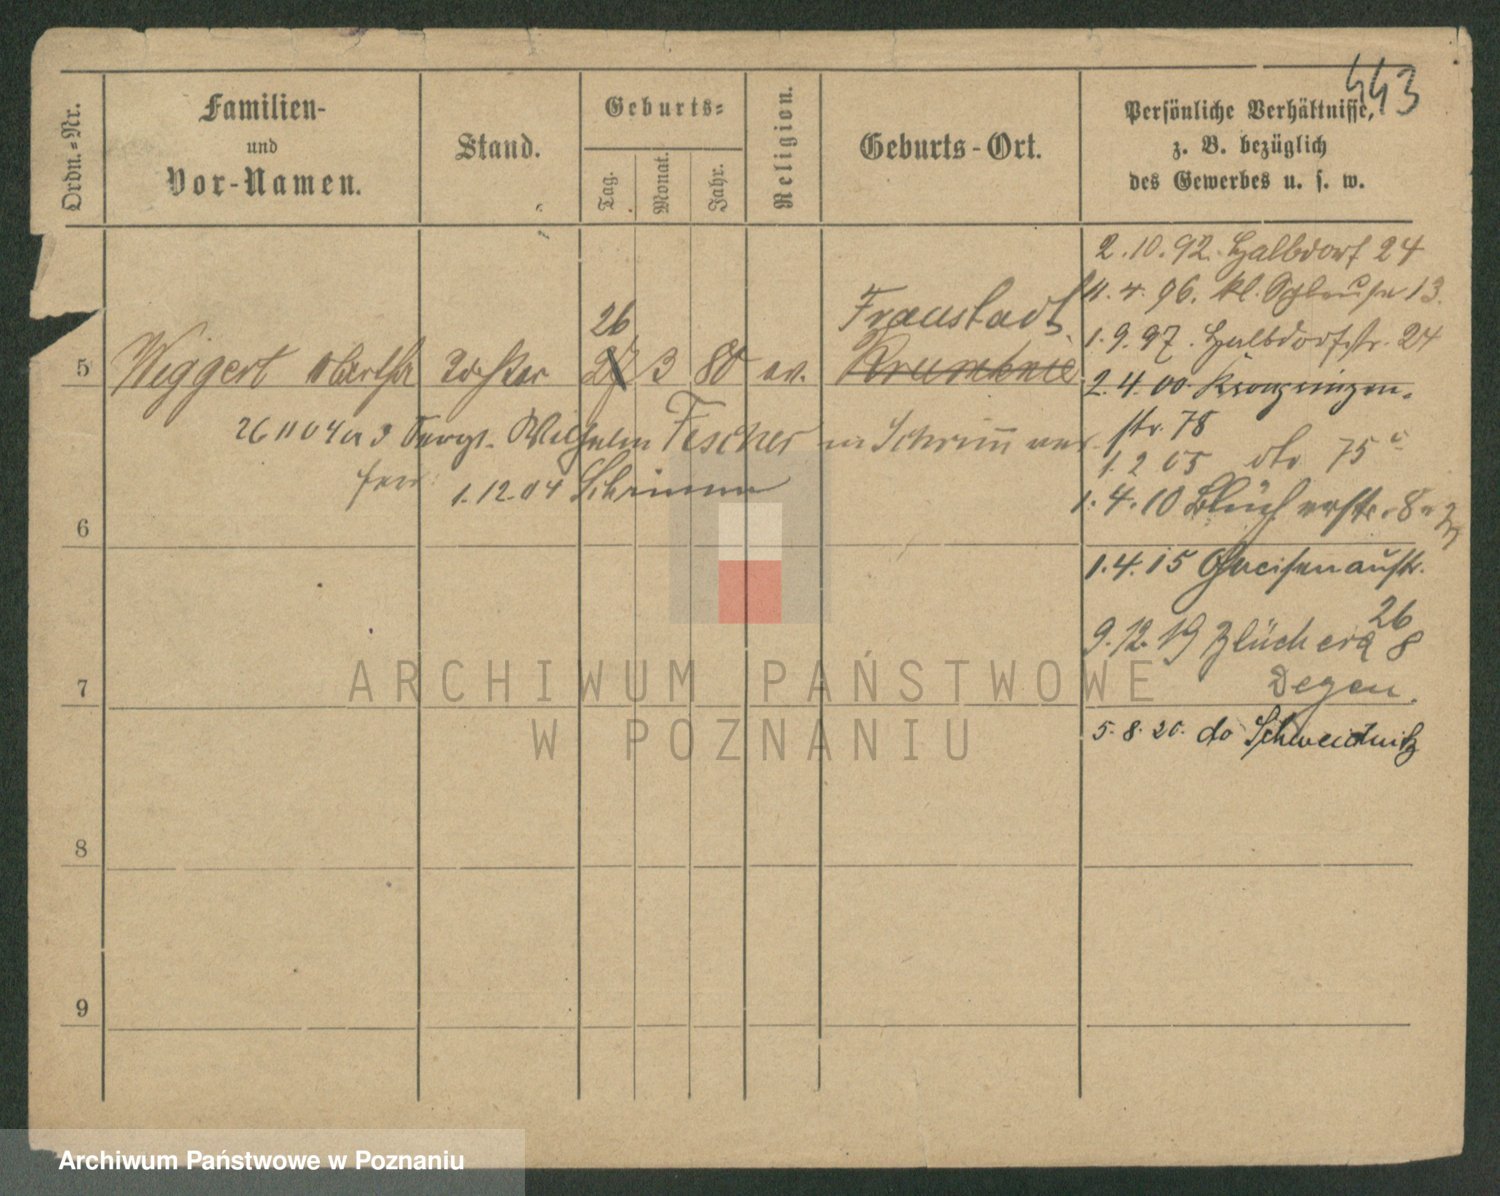 443
Ordn.-Nr.
Familien-
und
Vor-Namen.
Stand.
Geburts-
Tag.
Monat.
Jahr.
Religion.
Geburts-Ort.
Persönliche Verhältnisse,
z. B. bezüglich
des Gewerbes u. s. w.
5
Wiggert Bertha
Tochter
26
27 3 80
ev.
Fraustadt
2.10.92. Halbdorf 24
11.4.96. kl. 13.
1.9.97. Halbdorfstr. 24
2.4.00
str. 78
1.2 05 dto 75
1.4.10 Blücherstr. 8
1.4.15 Gneisenaustr.
26
9.12.19 Blücher 8
Degen.
5.8.20. do Schweidnitz
26 11 04 Wilhelm Fescher in Schrimm
1.12.04 Schrimm
6
7
8
9
ARCHIWUM PAŃSTWOWE
W POZNANIU
Archiwum Państwowe w Poznaniu